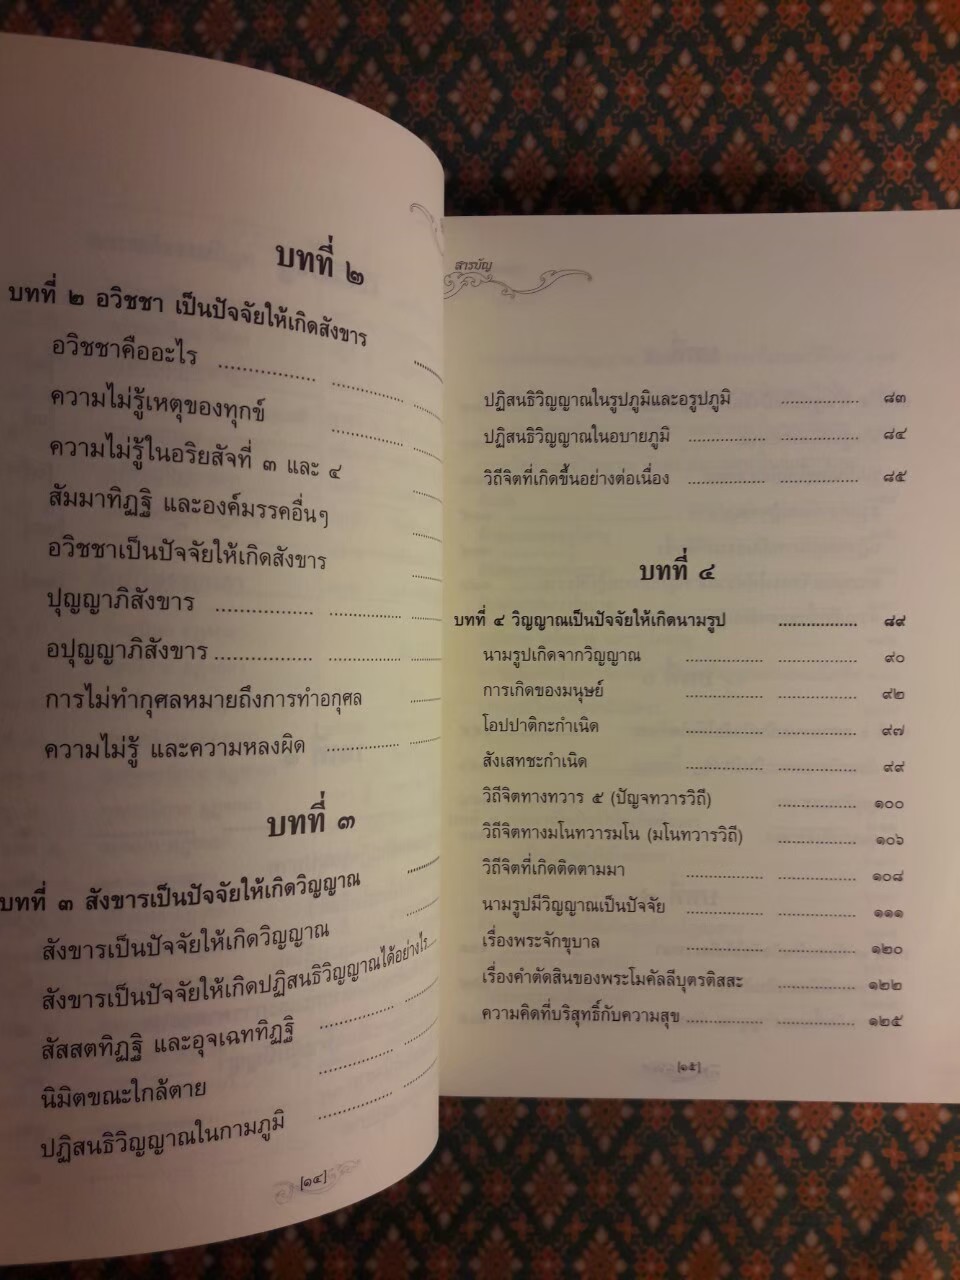 บทที่ ๒
บทที่ ๒ อวิชชา เป็นปัจจัยให้เกิดสังขาร
อวิชชาคืออะไร
ความไม่รู้เหตุของทุกข์
ความไม่รู้ในอริยสัจที่ ๓ และ ๔
สัมมาทิฏฐิ และองค์มรรคอื่นๆ
อวิชชาเป็นปัจจัยให้เกิดสังขาร
ปุญญาภิสังขาร
อปุญญาภิสังขาร
การไม่ทำกุศลหมายถึงการทำอกุศล
ความไม่รู้ และความหลงผิด
บทที่ ๓
บทที่ ๓ สังขารเป็นปัจจัยให้เกิดวิญญาณ
สังขารเป็นปัจจัยให้เกิดวิญญาณ
สังขารเป็นปัจจัยให้เกิดปฏิสนธิวิญญาณได้อย่างไร
สัสสตทิฏฐิ และอุจเฉททิฏฐิ
นิมิตขณะใกล้ตาย
ปฏิสนธิวิญญาณในกามภูมิ
[๑๔]
สารบัญ
ปฏิสนธิวิญญาณในรูปภูมิและอรูปภูมิ ๘๓
ปฏิสนธิวิญญาณในอบายภูมิ ๘๔
วิถีจิตที่เกิดขึ้นอย่างต่อเนื่อง ๘๕
บทที่ ๔
บทที่ ๔ วิญญาณเป็นปัจจัยให้เกิดนามรูป ๘๙
นามรูปเกิดจากวิญญาณ ๙๐
การเกิดของมนุษย์ ๙๒
โอปปาติกะกำเนิด ๙๗
สังเสทชะกำเนิด ๙๙
วิถีจิตทางทวาร ๕ (ปัญจทวารวิถี) ๑๐๐
วิถีจิตทางมโนทวารมโน (มโนทวารวิถี) ๑๐๖
วิถีจิตที่เกิดติดตามมา ๑๐๘
นามรูปมีวิญญาณเป็นปัจจัย ๑๑๑
เรื่องพระจักขุบาล ๑๒๐
เรื่องคำตัดสินของพระโมคัลลีบุตรติสสะ ๑๒๒
ความคิดที่บริสุทธิ์กับความสุข ๑๒๕
[๑๕]